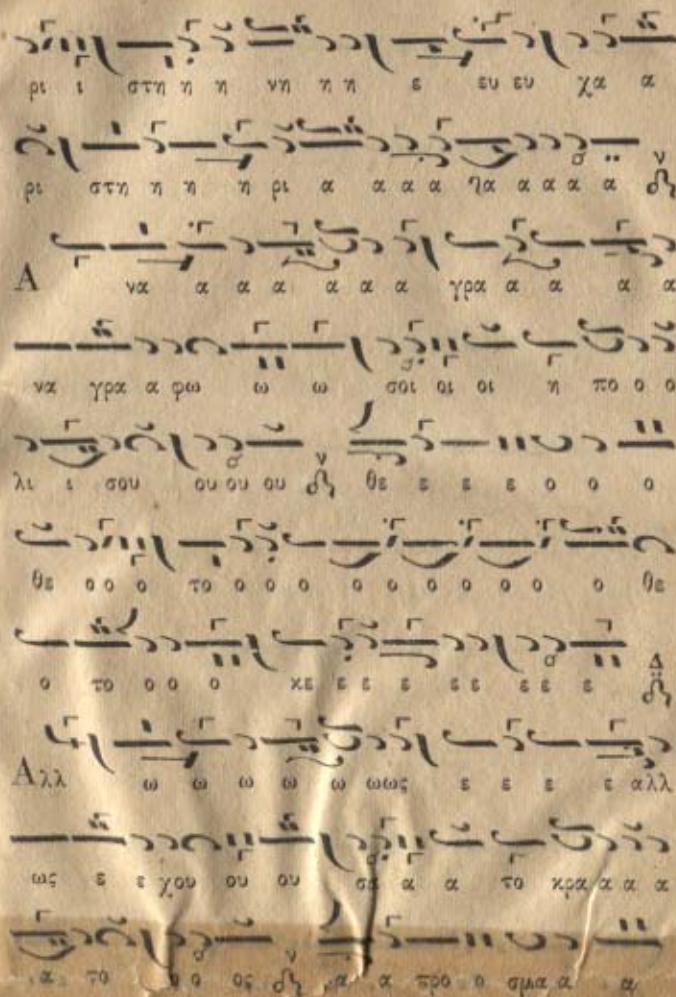 ρι ι στη η η νη η η ε ευ ευ χα α
ρι στη η η η ρι α α α α ηα α α α α ν
Α να α α α α α α γρα α α α α
να γρα α φω ω ω σοι οι οι η πο ο ο
λι ι σου ου ου ου ν θε ε ε ε ο ο ο
θε ο ο ο το ο ο ο ο ο ο ο ο ο ο θε
ο το ο ο ο κε ε ε ε ε ε ε ε ε Δ
Αλλ ω ω ω ω ω ωως ε ε ε ε αλλ
ως ε ε χου ου ου σα α α το κρα α α α
α το ο ο ος ν α α προ ο σμα α α